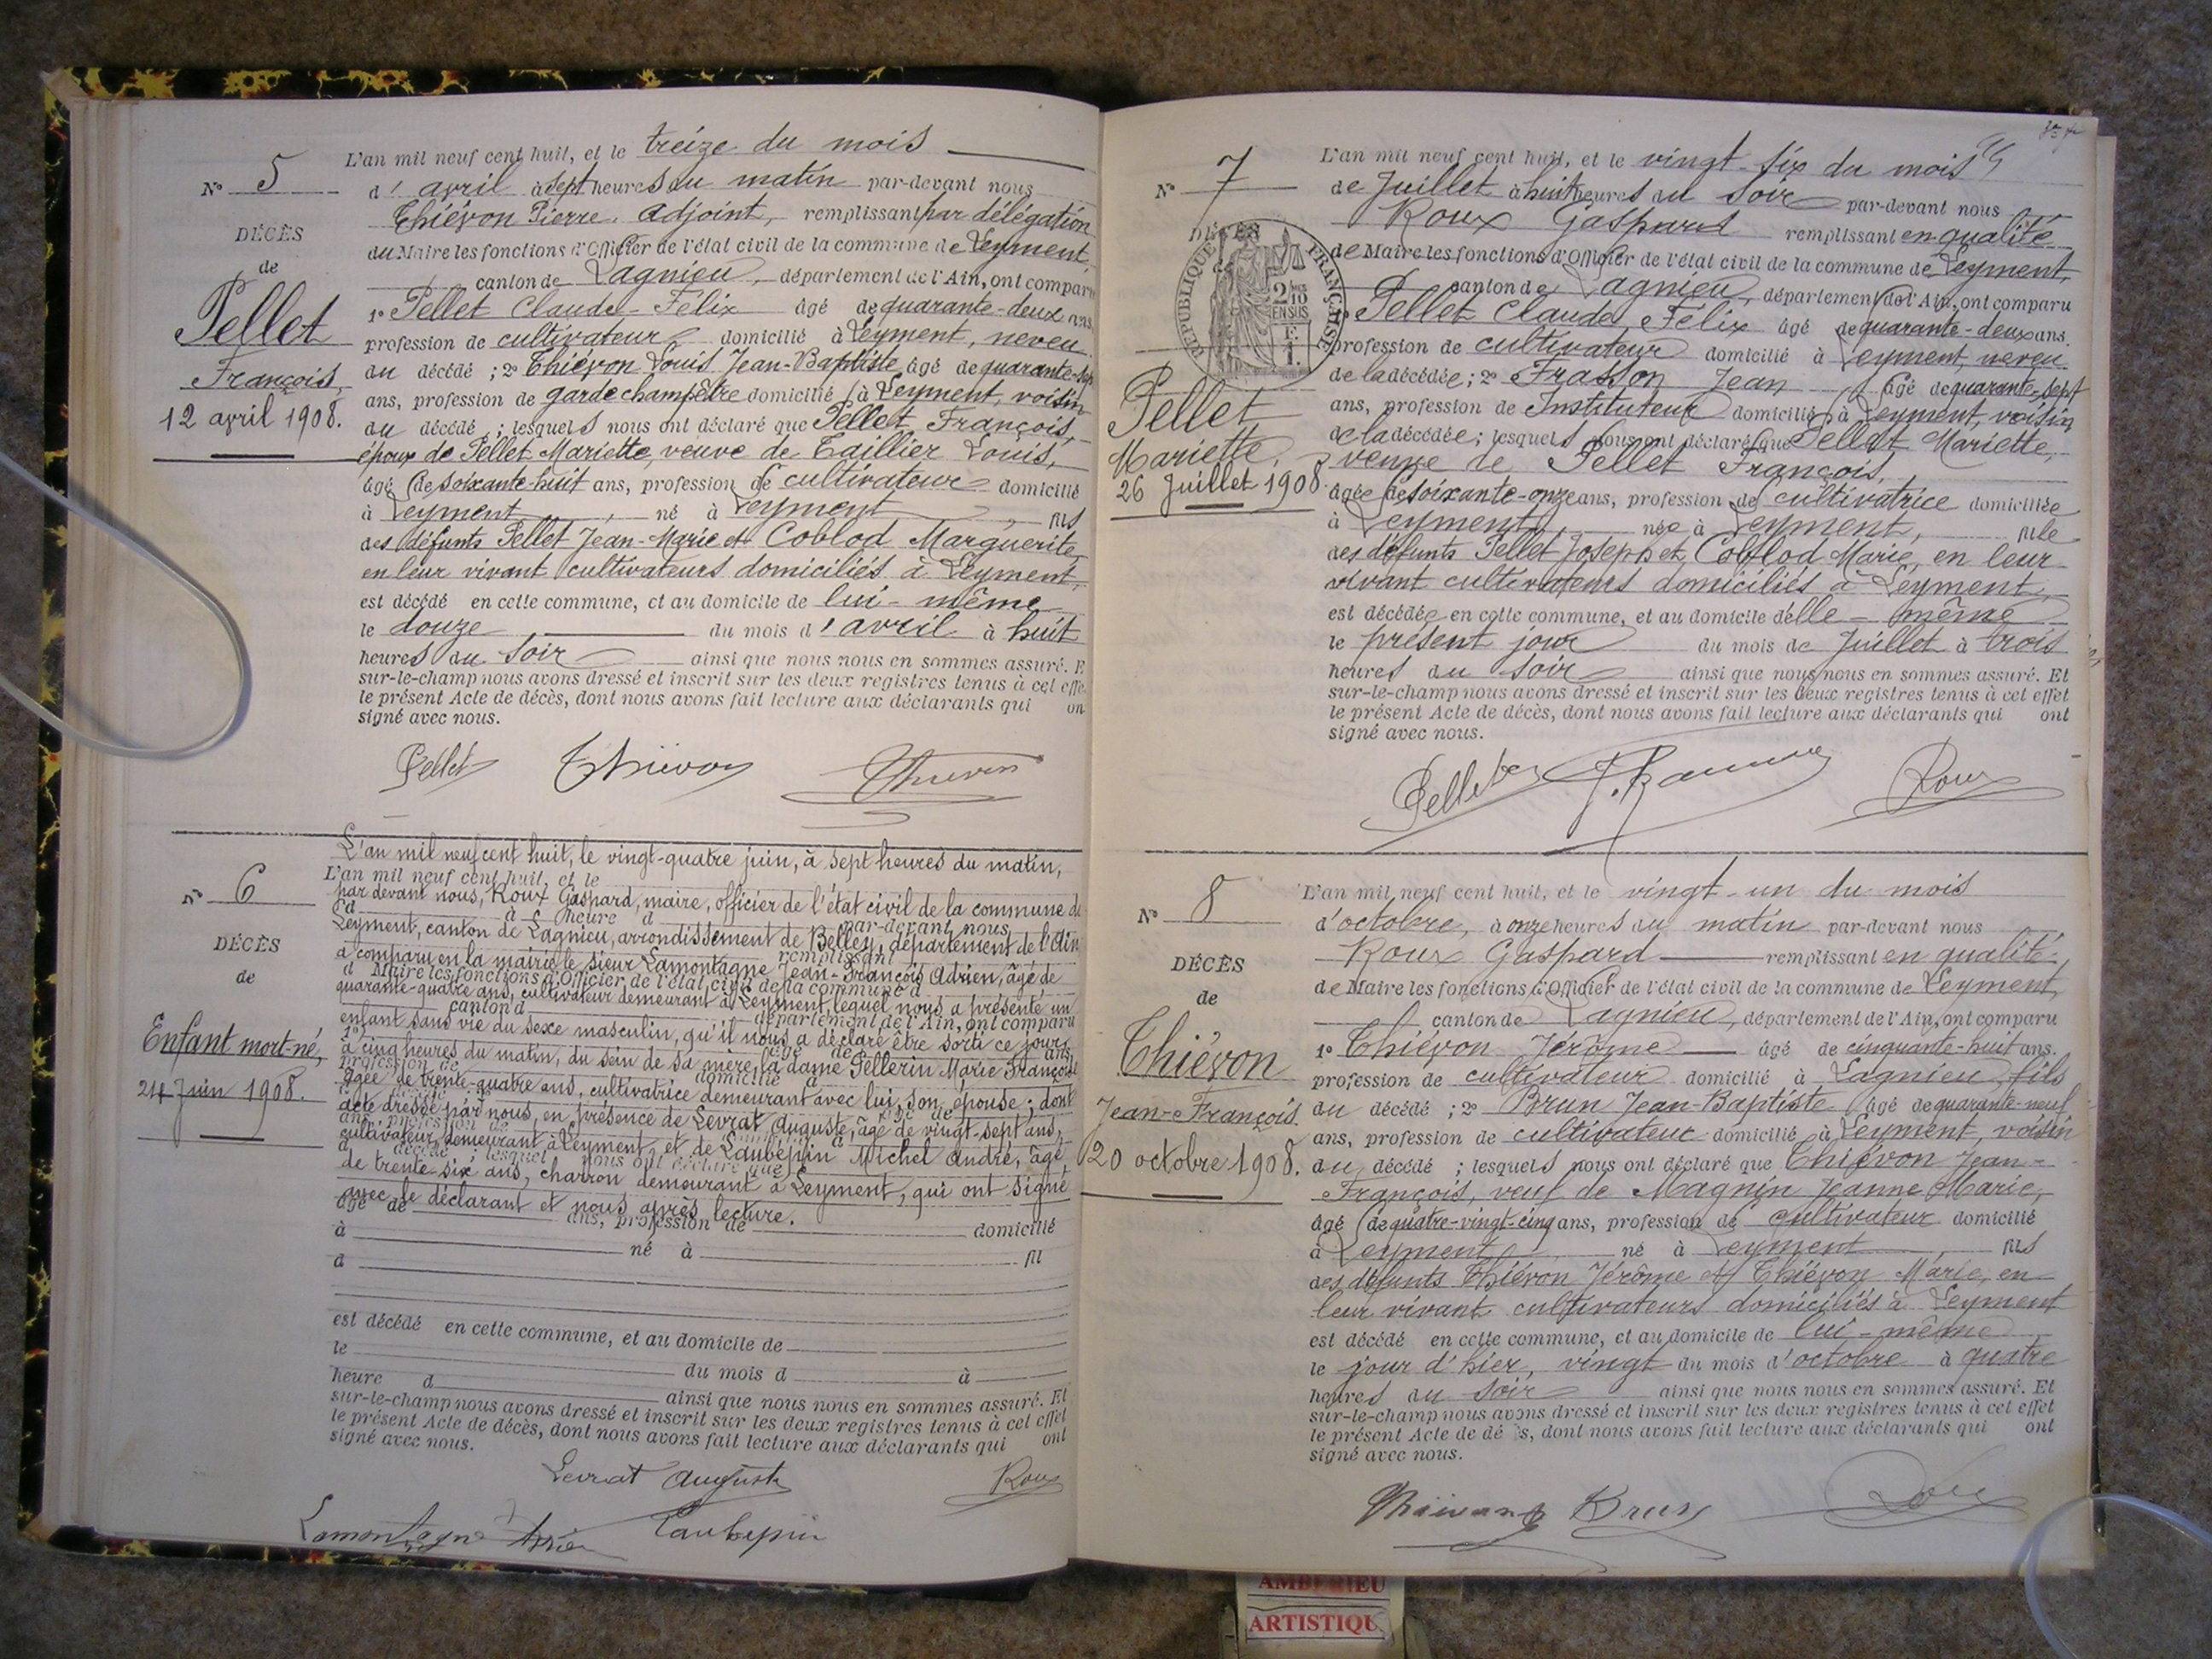 L'an mil neuf cent huit, et le treize du mois
N° 5
d'avril à sept heures du matin par-devant nous
Thiévon Pierre, Adjoint, remplissant par délégation
DÉCÈS
du Maire les fonctions d'Officier de l'état civil de la commune de Leyment,
de
canton de Lagnieu, département de l'Ain, ont comparu
Pellet
1° Pellet Claude-Félix âgé de quarante-deux ans
profession de cultivateur domicilié à Leyment, neveu
François,
du décédé ; 2° Thiévon Louis Jean-Baptiste âgé de quarante-sept
12 avril 1908.
ans, profession de garde champêtre domicilié à Leyment, voisin
du décédé ; lesquels nous ont déclaré que Pellet François,
époux de Pellet Mariette, veuve de Taillier Louis,
âgé de soixante-huit ans, profession de cultivateur domicilié
à Leyment, né à Leyment, fils
des défunts Pellet Jean-Marie et Coblod Marguerite,
en leur vivant cultivateurs domiciliés à Leyment,
est décédé en cette commune, et au domicile de lui-même
le douze du mois d'avril à huit
heures du soir ainsi que nous nous en sommes assuré. E
sur-le-champ nous avons dressé et inscrit sur les deux registres tenus à cet effe
le présent Acte de décès, dont nous avons fait lecture aux déclarants qui on
signé avec nous.
Pellet Thiévon Thievon
L'an mil neuf cent huit, le vingt-quatre juin, à sept heures du matin,
L'an mil neuf cent huit, et le
N° 6
par devant nous, Roux Gaspard, maire, officier de l'état civil de la commune de
d à heure d par-devant nous
Leyment, canton de Lagnieu, arrondissement de Belley, département de l'Ain
remplissant
DÉCÈS
a comparu en la mairie le sieur Lamontagne Jean-François Adrien, âgé de
d Maire les fonctions d'Officier de l'état civil de la commune d
de
quarante-quatre ans, cultivateur demeurant à Leyment lequel nous a présenté un
canton d département de l'Ain, ont comparu
Enfant mort-né,
enfant sans vie du sexe masculin, qu'il nous a déclaré être sorti ce jour,
1° âgé de ans
à cinq heures du matin, du sein de sa mère, la dame Pellerin Marie Françoise
profession de domicilié à
24 Juin 1908.
âgée de trente-quatre ans, cultivatrice demeurant avec lui, son épouse ; dont
acte dressé par nous, en présence de Levrat Auguste, âgé de vingt-sept ans,
ans, profession de
cultivateur, demeurant à Leyment, et de Laubépin Michel André, âgé
décédé ; lesquel nous ont déclaré que
de trente-six ans, charron demeurant à Leyment, qui ont signé
avec le déclarant et nous après lecture.
âgé de ans, profession de domicilié
à né à fil
d
est décédé en cette commune, et au domicile de
le du mois d à
heure d ainsi que nous nous en sommes assuré. Et
sur-le-champ nous avons dressé et inscrit sur les deux registres tenus à cet effet
le présent Acte de décès, dont nous avons fait lecture aux déclarants qui ont
signé avec nous.
Levrat Auguste Roux
Lamontagne Adrien Laubepin
L'an mil neuf cent huit, et le vingt-six du mois
N° 7
de Juillet à huit heures du soir par-devant nous
Roux Gaspard remplissant en qualité
DÉCÈS
RÉPUBLIQUE FRANÇAISE
2/10 EN SUS
de Maire les fonctions d'Officier de l'état civil de la commune de Leyment,
canton de Lagnieu, département de l'Ain, ont comparu
Pellet Claude Félix âgé de quarante-deux ans.
profession de cultivateur domicilié à Leyment, neveu
Pellet
de la décédée ; 2° Frasson Jean âgé de quarante-sept
ans, profession de Instituteur domicilié à Leyment, voisin
Mariette,
de la décédée ; lesquels nous ont déclaré que Pellet Mariette,
veuve de Pellet François,
26 Juillet 1908.
âgée de soixante-onze ans, profession de cultivatrice domiciliée
à Leyment, née à Leyment, fille
des défunts Pellet Joseph et Coblod Marie, en leur
vivant cultivateurs domiciliés à Leyment,
est décédée en cette commune, et au domicile d'elle-même
le présent jour du mois de Juillet à trois
heures du soir ainsi que nous nous en sommes assuré. Et
sur-le-champ nous avons dressé et inscrit sur les deux registres tenus à cet effet
le présent Acte de décès, dont nous avons fait lecture aux déclarants qui ont
signé avec nous.
Pellet Roux
L'an mil neuf cent huit, et le vingt-un du mois
N° 8
d'octobre, à onze heures du matin par-devant nous
Roux Gaspard remplissant en qualité
DÉCÈS
de Maire les fonctions d'Officier de l'état civil de la commune de Leyment,
de
canton de Lagnieu, département de l'Ain, ont comparu
Thiévon
1° Thiévon Jérôme âgé de cinquante-huit ans.
profession de cultivateur domicilié à Lagnieu, fils
Jean-François.
du décédé ; 2° Brun Jean-Baptiste âgé de quarante-neuf
ans, profession de cultivateur domicilié à Leyment, voisin
20 octobre 1908.
du décédé ; lesquels nous ont déclaré que Thiévon Jean-
François, veuf de Magnin Jeanne Marie,
âgé de quatre-vingt-cinq ans, profession de cultivateur domicilié
à Leyment, né à Leyment, fils
des défunts Thiévon Jérôme et Thiévon Marie, en
leur vivant cultivateurs domiciliés à Leyment
est décédé en cette commune, et au domicile de lui-même
le jour d'hier, vingt du mois d'octobre à quatre
heures du soir ainsi que nous nous en sommes assuré. Et
sur-le-champ nous avons dressé et inscrit sur les deux registres tenus à cet effet
le présent Acte de dé s, dont nous avons fait lecture aux déclarants qui ont
signé avec nous.
Brun Roux
AMBERIEU
ARTISTIQU